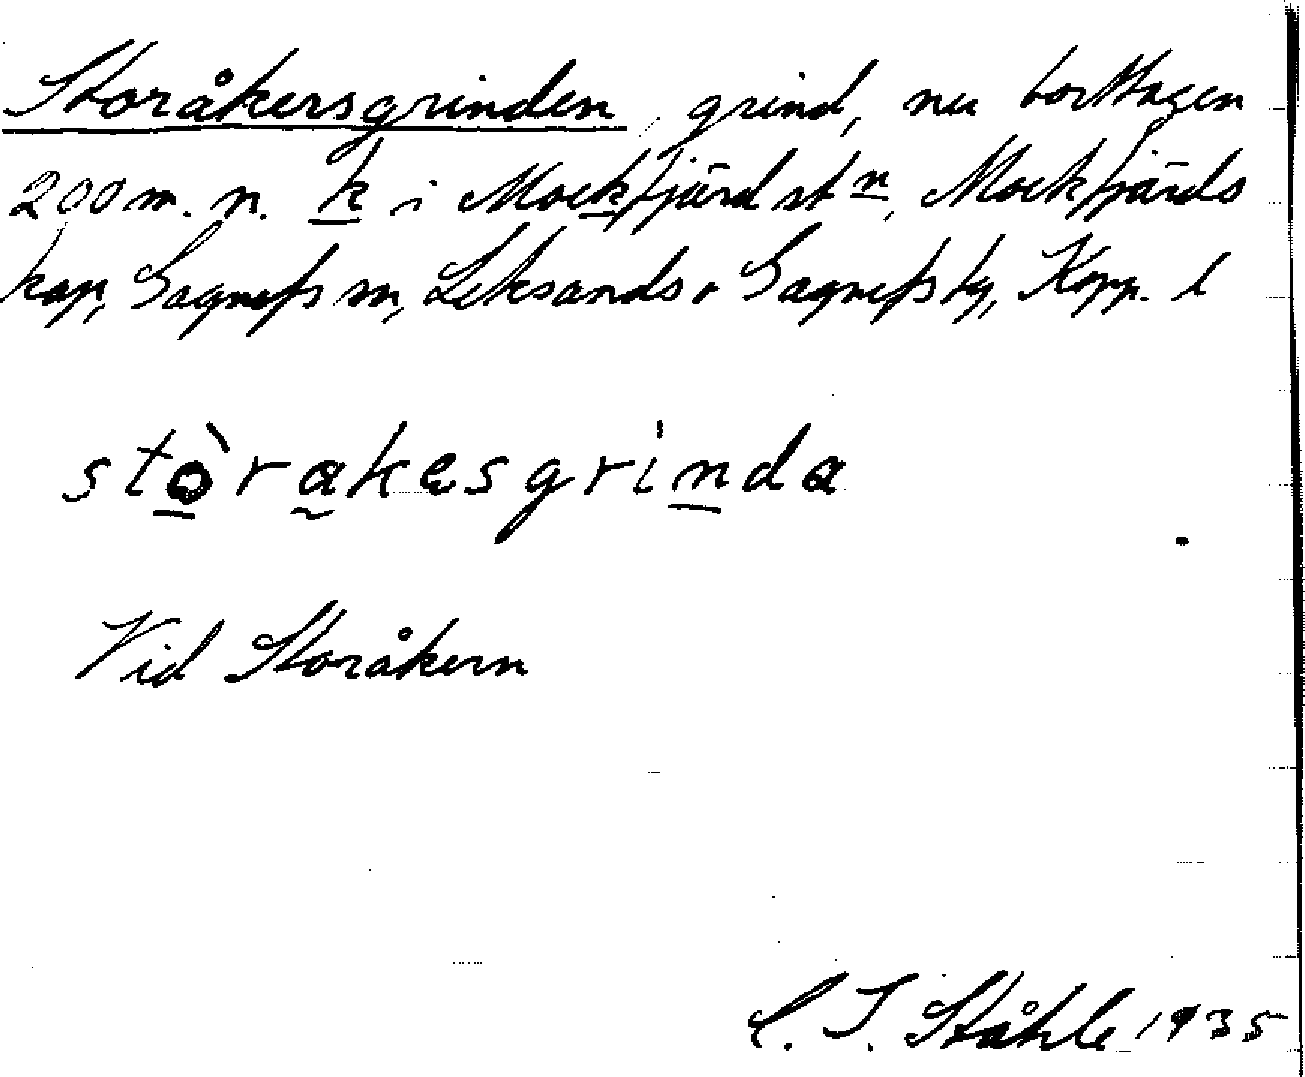 Storåkersgrinden, grind, nu borttagen
200 m. n. k i Mockfjärd st n, Mockfjärds
kap, Gagnefs sn, Leksands o Gagnefs tg, Kopp. l
stòrakesgrinda
Vid Storåkern
C. I. Ståhle 1935